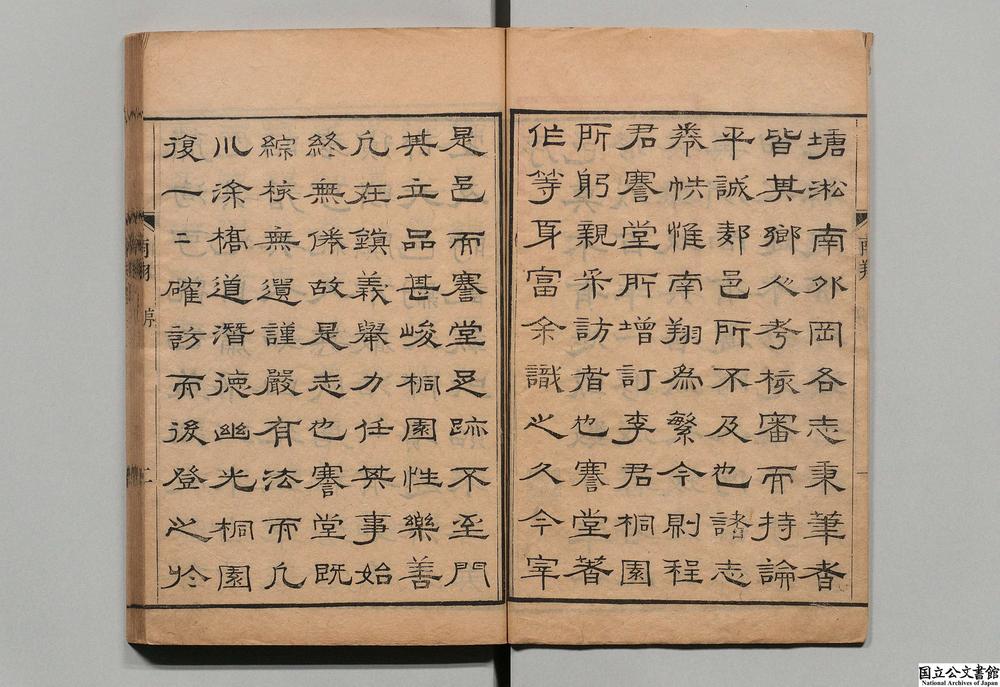 塘淞南外岡各志秉筆者
皆其鄉人考核審而持論
平誠郟邑所不及也諸志
卷帙惟南翔為繁今則程
君謇堂所增訂李君桐園
所躬親采訪者也謇堂著
作等身富余識之久今宰
是邑而謇堂足跡不至門
其立品甚峻桐園性樂善
凡在鎮義舉力任其事始
終無倦故是志也謇堂既
綜核無遺謹嚴有法而凡
川涂橋道潛德幽光桐園
復一二確訪而後登之於
南翔
南翔 序
二
国立公文書館
National Archives of Japan